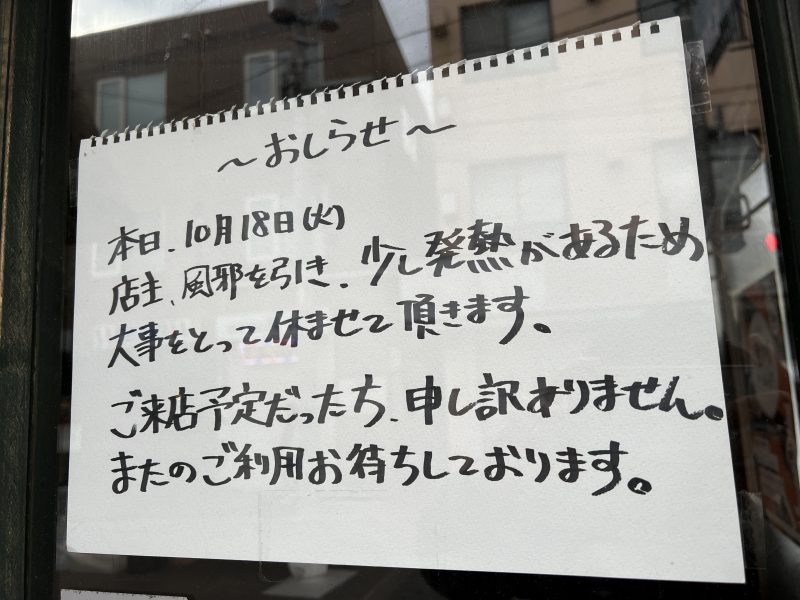 ～おしらせ～
本日、10月18日(火)
店主、風邪を引き、少し発熱があるため
大事をとって休ませて頂きます。
ご来店予定だったち、申し訳ありません。
またのご利用お待ちしております。